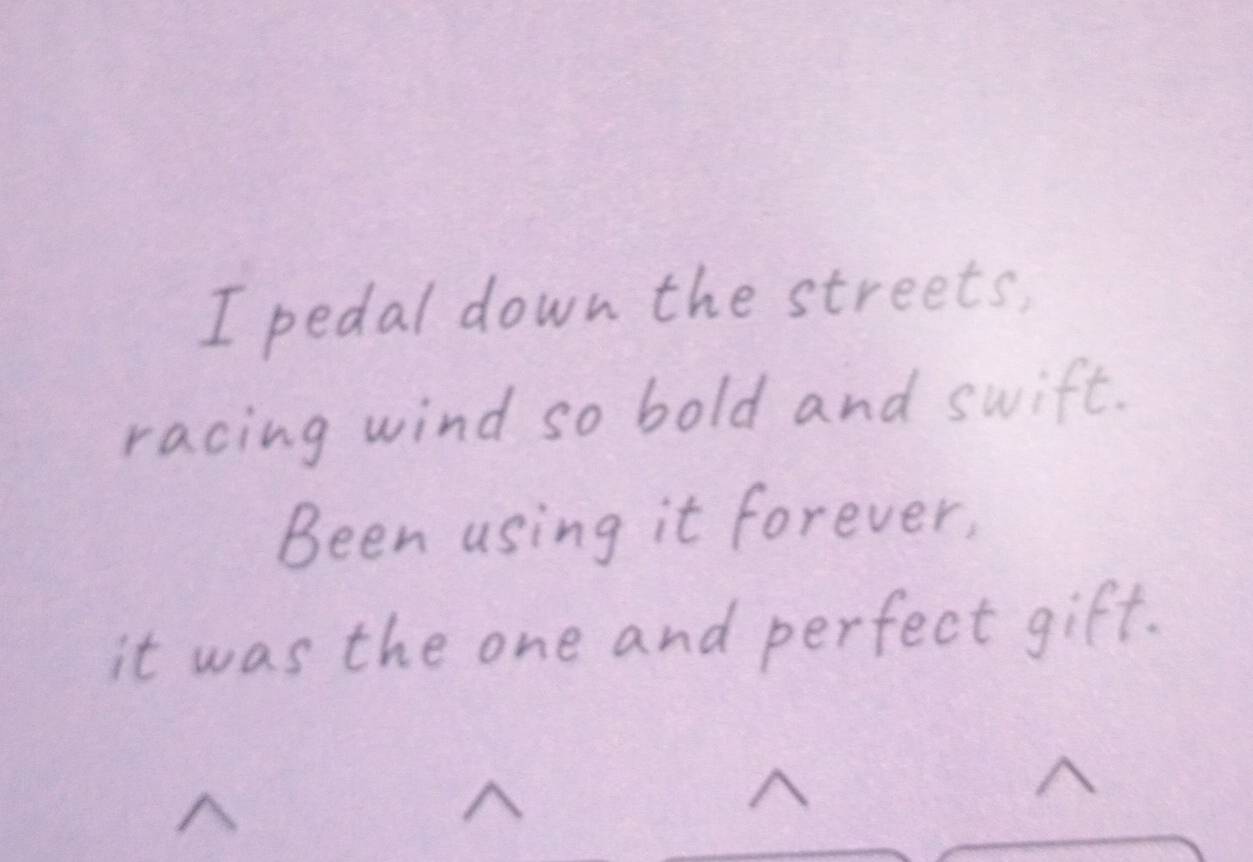 I pedal down the streets,
racing wind so bold and swift.
Been using it forever,
it was the one and perfect gift.